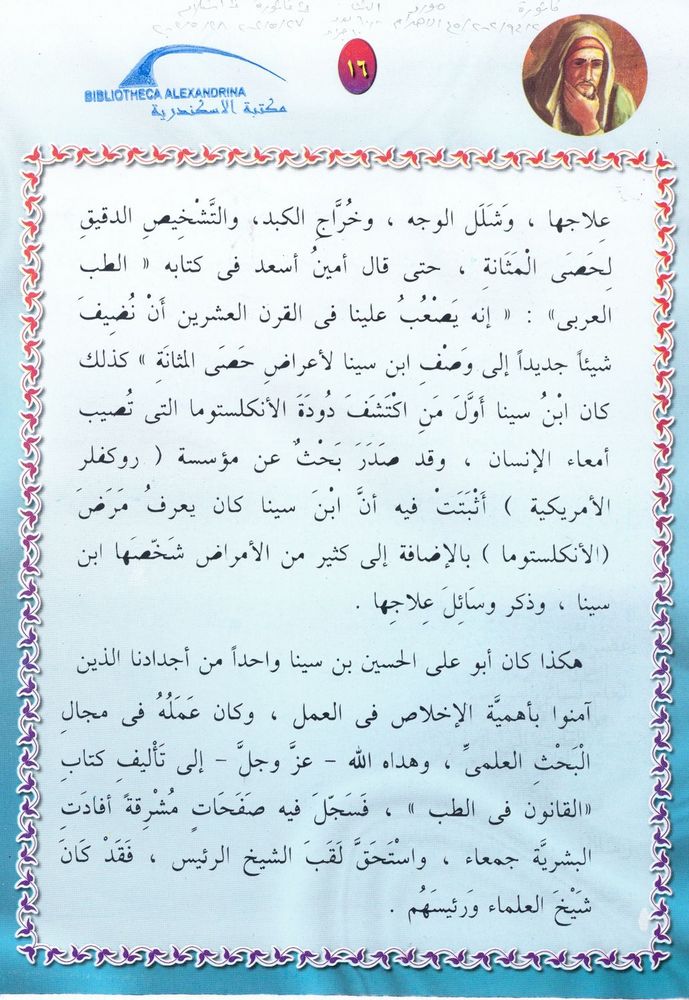 BIBLIOTHECA ALEXANDRINA
مكتبة الاسكندرية
١٦
عِلاجها ، وَشَلَل الوجه ، وخُرَّاجِ الكبد، والتَّشْخِيصِ الدقيقِ
لِحَصَى الْمَثَانةِ ، حتى قال أمينُ أسعد فى كتابه « الطب
العربى» : « إنه يَصْعُبُ علينا فى القرن العشرين أَنْ نُضِيفَ
شيئاً جديداً إلى وَصْفِ ابن سينا لأعراضِ حَصَى المثانَةِ » كذلك
كان ابْنُ سينا أَوَّلَ مَنِ اكْتَشَفَ دُودَةَ الأنكلستوما التى تُصيب
أمعاء الإنسان ، وقد صَدَرَ بَحْثٌ عن مؤسسة ( روكفلر
الأمريكية ) أَثْبَتَتْ فيه أنَّ ابْنَ سينا كان يعرفُ مَرَضَ
(الأنكلستوما ) بالإضافة إلى كثير من الأمراض شَخّصَها ابن
سينا ، وذكر وسَائِلَ عِلاجِها .
هكذا كان أبو على الحسين بن سينا واحداً من أجدادنا الذين
آمنوا بأهميَّة الإخلاص فى العمل ، وكان عَمَلُهُ فى مجالِ
الْبَحْثِ العلمىِّ ، وهداه الله - عزَّ وجلَّ - إلى تَأْليفِ كتابِ
«القانون فى الطب » ، فَسَجّلَ فيه صفَحَاتٍ مُشْرِقةً أفادَتِ
البشريَّة جمعاء ، واسْتَحَقَّ لَقَبَ الشيخ الرئيس ، فَقَدْ كَانَ
شَيْخَ العلماء وَرئيسَهُم .